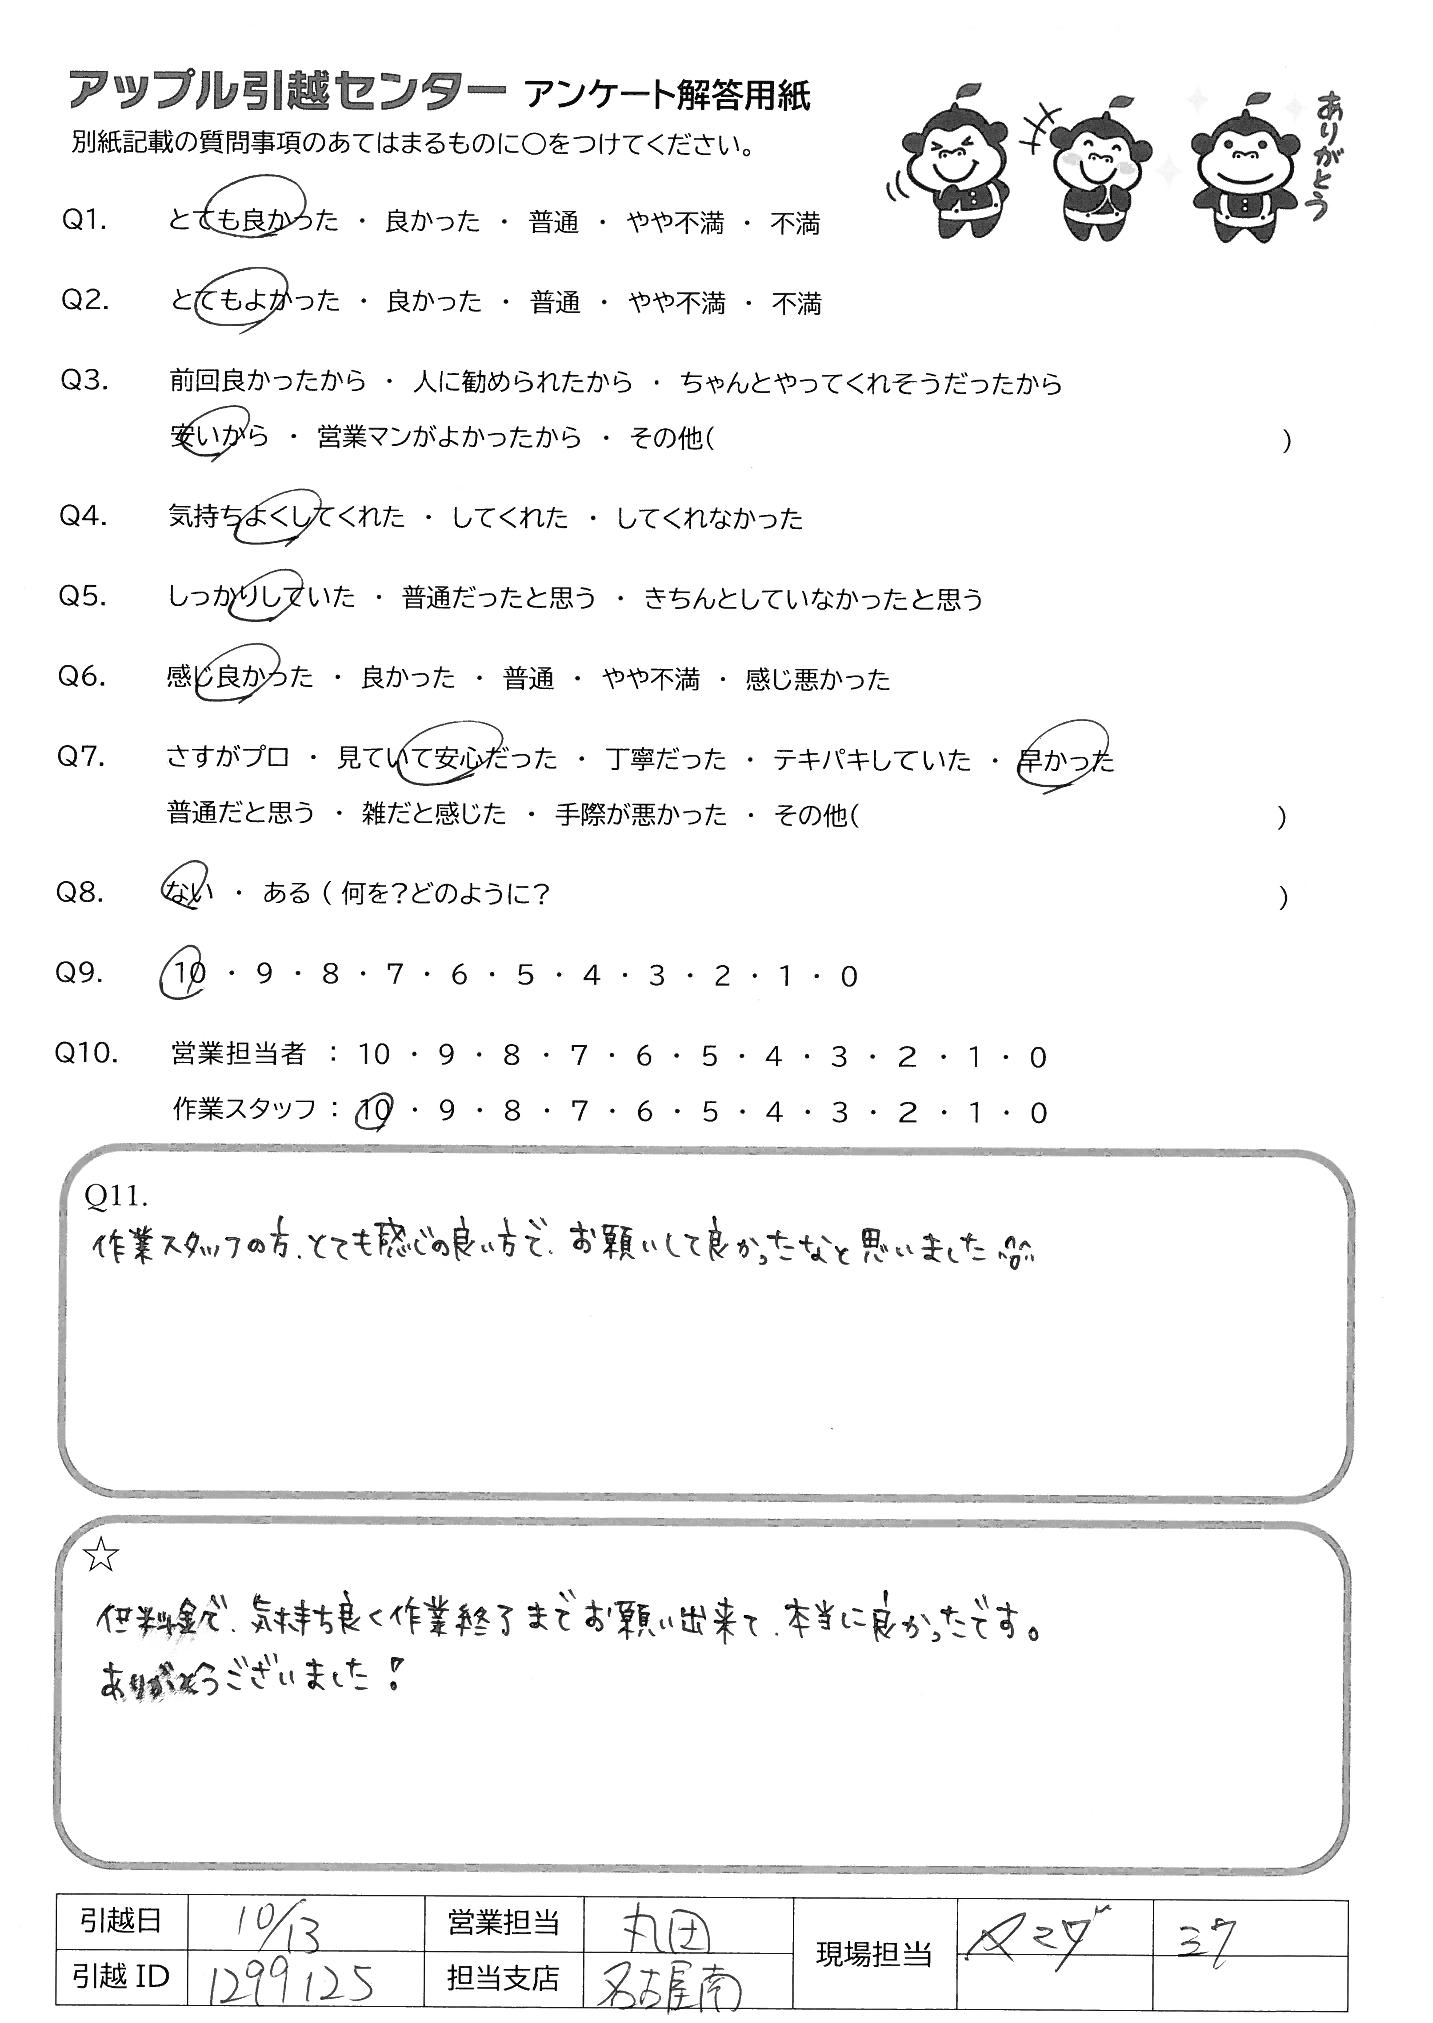 アップル引越センター アンケート解答用紙
別紙記載の質問事項のあてはまるものに○をつけてください。
ありがとう
Q1. とても良かった ・ 良かった ・ 普通 ・ やや不満 ・ 不満
Q2. とてもよかった ・ 良かった ・ 普通 ・ やや不満 ・ 不満
Q3. 前回良かったから ・ 人に勧められたから ・ ちゃんとやってくれそうだったから
安いから ・ 営業マンがよかったから ・ その他( )
Q4. 気持ちよくしてくれた ・ してくれた ・ してくれなかった
Q5. しっかりしていた ・ 普通だったと思う ・ きちんとしていなかったと思う
Q6. 感じ良かった ・ 良かった ・ 普通 ・ やや不満 ・ 感じ悪かった
Q7. さすがプロ ・ 見ていて安心だった ・ 丁寧だった ・ テキパキしていた ・ 早かった
普通だと思う ・ 雑だと感じた ・ 手際が悪かった ・ その他( )
Q8. ない ・ ある ( 何を?どのように? )
Q9. 10 ・ 9 ・ 8 ・ 7 ・ 6 ・ 5 ・ 4 ・ 3 ・ 2 ・ 1 ・ 0
Q10. 営業担当者 : 10 ・ 9 ・ 8 ・ 7 ・ 6 ・ 5 ・ 4 ・ 3 ・ 2 ・ 1 ・ 0
作業スタッフ : 10 ・ 9 ・ 8 ・ 7 ・ 6 ・ 5 ・ 4 ・ 3 ・ 2 ・ 1 ・ 0
Q11.
作業スタッフの方、とても感じの良い方で、お願いして良かったなと思いました
☆
低料金で、気持ち良く作業終了までお願い出来て、本当に良かったです。
ありがとうございました!
引越日 10/13 営業担当 丸田 現場担当
引越ID 1299125 担当支店 名古屋南